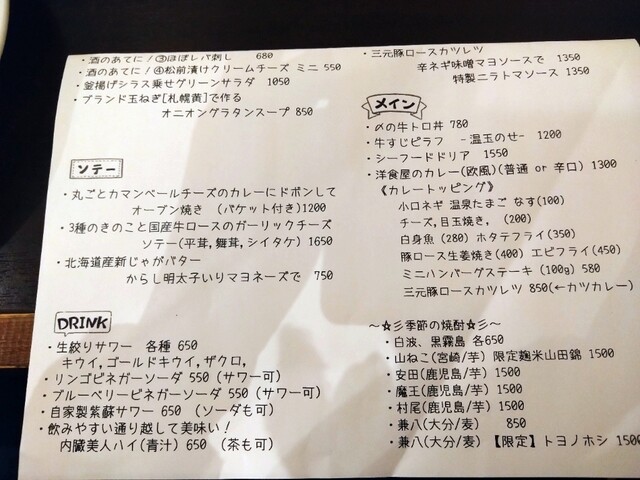 ・酒のあてに！③ほぼレバ刺し 680
・酒のあてに！④松前漬けクリームチーズ ミニ 550
・釜揚げシラス乗せグリーンサラダ 1050
・ブランド玉ねぎ[札幌黄]で作る
オニオングラタンスープ 850
ソテー
・丸ごとカマンベールチーズのカレーにドボンして
オーブン焼き (バケット付き)1200
・3種のきのこと国産牛ロースのガーリックチーズ
ソテー(平茸,舞茸,シイタケ) 1650
・北海道産新じゃがバター
からし明太子いりマヨネーズで 750
DRINK
・生絞りサワー 各種 650
キウイ,ゴールドキウイ,ザクロ,
・リンゴビネガーソーダ 550 (サワー可)
・ブルーベリービネガーソーダ 550 (サワー可)
・自家製紫蘇サワー 650 (ソーダも可)
・飲みやすい通り越して美味い！
内臓美人ハイ(青汁) 650 (茶も可)
・三元豚ロースカツレツ
辛ネギ味噌マヨソースで 1350
特製ニラトマソース 1350
メイン
・〆の牛トロ丼 780
・牛すじピラフ -温玉のせ- 1200
・シーフードドリア 1550
・洋食屋のカレー(欧風)(普通 or 辛口) 1300
《カレートッピング》
小口ネギ 温泉たまご なす(100)
チーズ,目玉焼き, (200)
白身魚 (280) ホタテフライ(350)
豚ロース生姜焼き(400) エビフライ(450)
ミニハンバーグステーキ (100g) 580
三元豚ロースカツレツ 850(←カツカレー)
～☆彡季節の焼酎☆彡～
・白波、黒霧島 各650
・山ねこ(宮崎/芋) 限定麹米山田錦 1500
・安田(鹿児島/芋) 1500
・魔王(鹿児島/芋) 1500
・村尾(鹿児島/芋) 1500
・兼八(大分/麦) 850
・兼八(大分/麦) 【限定】トヨノホシ 1500